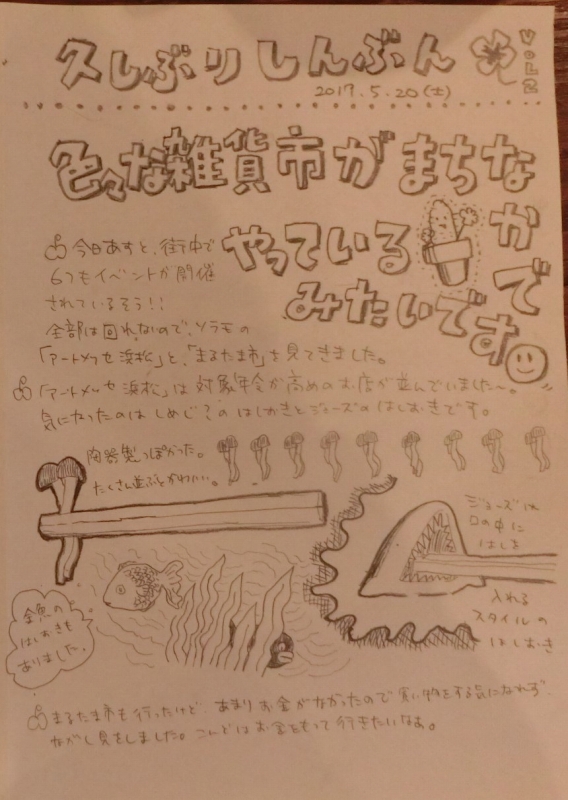 久しぶりしんぶん
VOL2
2017.5.20(土)
色々な雑貨市がまちなかで
やっている
みたいです
今日あすと、街中で
6つもイベントが開催
されているそう!!
全部は回れないので、ソラモの
「アートメッセ浜松」と、「まるたま市」を見てきました。
「アートメッセ浜松」は対象年令が高めのお店が並んでいました〜。
気になったのはしめじ?のはしおきとジョーズのはしおきです。
陶器製っぽかった。
たくさん並ぶとかわいい。
ジョーズは
口の中に
はしを
入れる
スタイルの
はしおき
金魚の
はしおきも
ありました。
まるたま市も行ったけど、あまりお金がなかったので買い物をする気になれず、
ながし見をしました。こんどはお金をもって行きたいなあ。